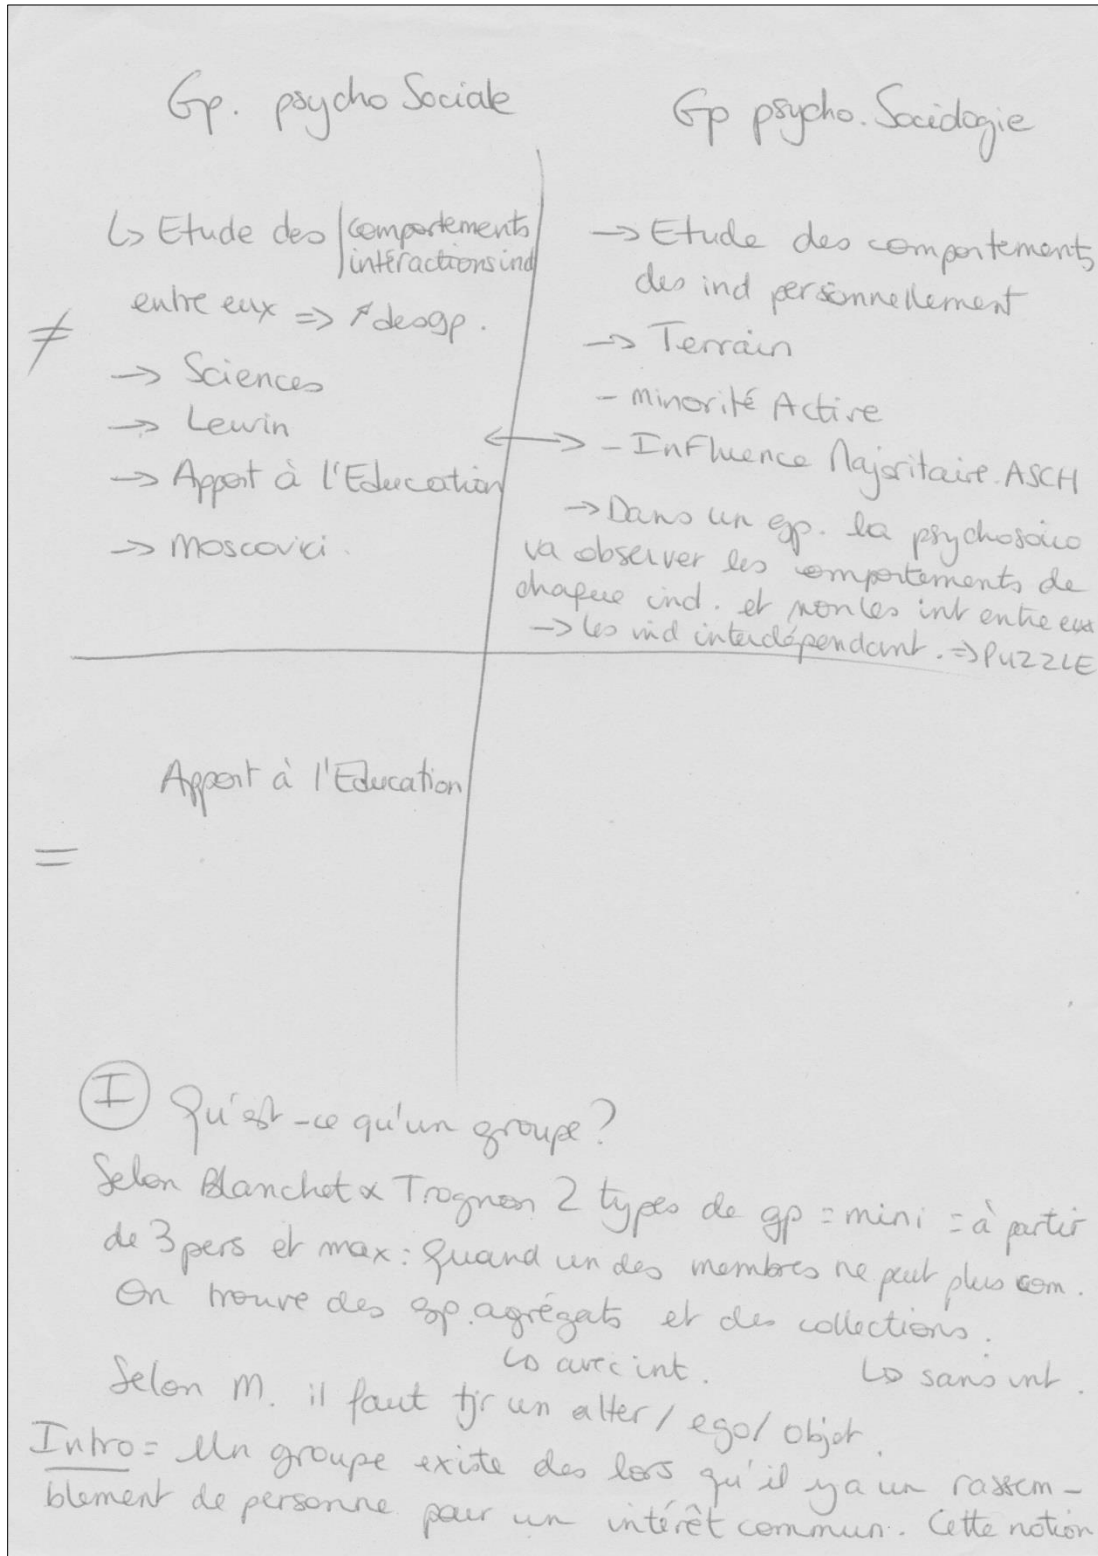 Gp. psycho Sociale
Gp psycho. Sociologie
≠
↳ Etude des comportements
intéractions ind
entre eux => ↗ des gp.
→ Sciences
→ Lewin
→ Apport à l'Education
→ Moscovici.
→ Etude des comportements
des ind personnellement
→ Terrain
- minorité Active
↔ - Influence Majoritaire. ASCH
→ Dans un gp. la psychosoico
va observer les comportements de
chaque ind. et non les int entre eux
→ les ind interdépendant. => PUZZLE
=
Apport à l'Education
I Qu'est-ce qu'un groupe?
Selon Blanchet & Trognon 2 types de gp = mini = à partir
de 3 pers et max: quand un des membres ne peut plus com.
On trouve des gp. agrégats et des collections.
↳ avec int. ↳ sans int.
Selon M. il faut tjr un alter/ego/objet.
Intro = Un groupe existe des lors qu'il y a un rassem-
blement de personne pour un intérêt commun. Cette notion